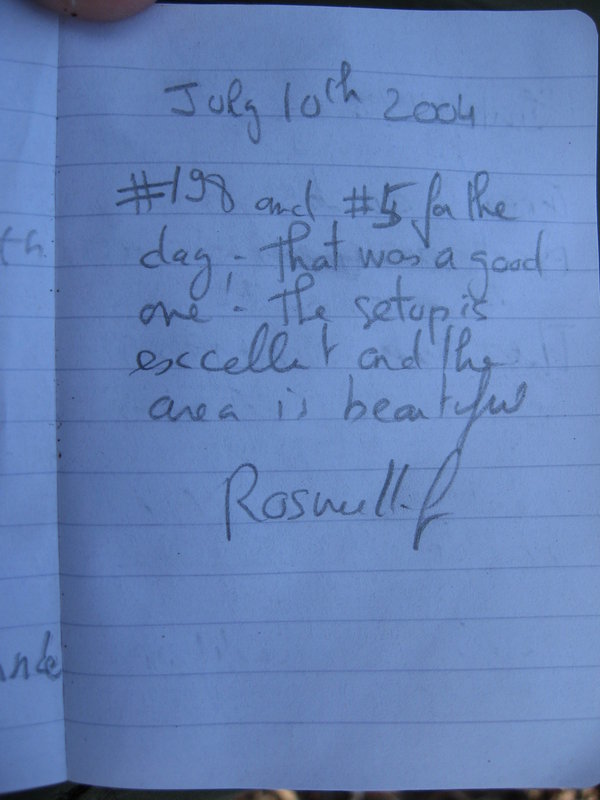 July 10th 2004
#198 and #5 for the
day; - that was a good
one! - the setup is
excellent and the
area is beautiful
th
nde